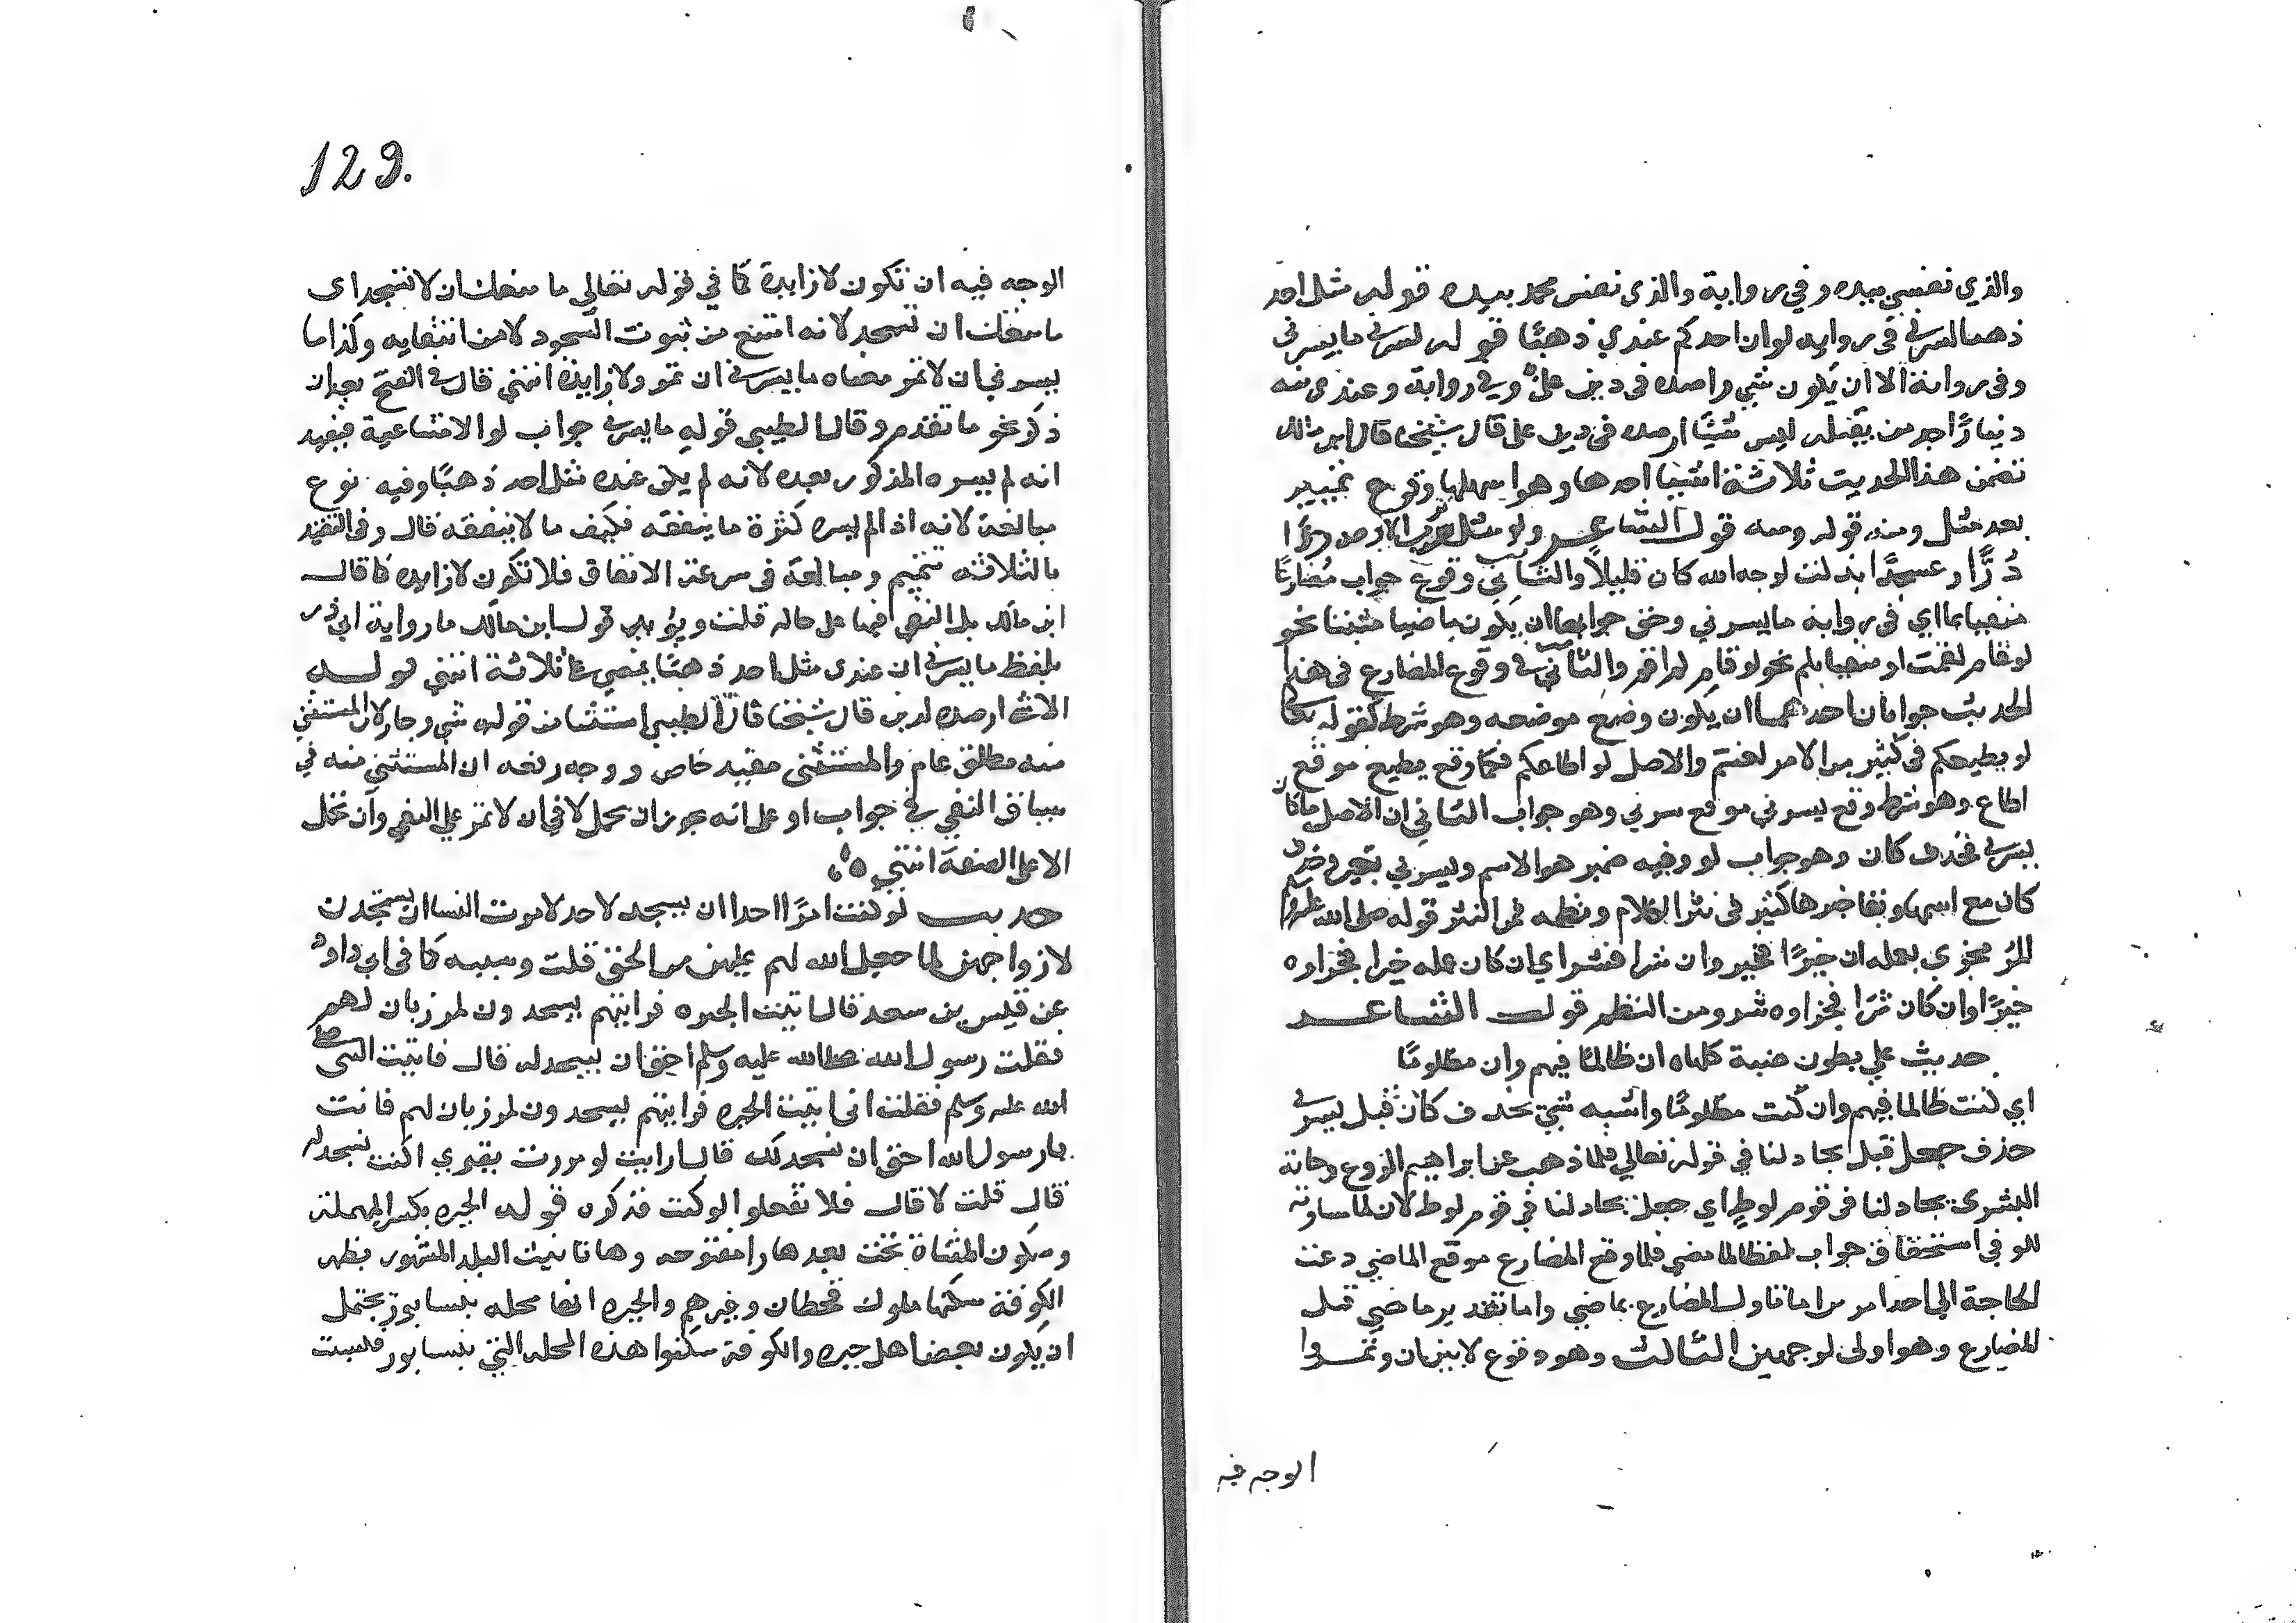 والذي نفسي بيده وفي رواية والذي نفس محمد بيده قوله مثل احد
ذهبا لسرني في رواية لو ان احدكم عندي ذهبًا قوله لسرني ما يسرني
وفي رواية الا ان يكون شي ارصده في دين علىّ وفي رواية وعندي منه
دينارًا اجد من يقبله ليس شيئًا ارصده في دين على قال شيخنا قال ابن مالك
تضمن هذا الحديث ثلاثة اشيا احدها وهو اسهلها وقوع تمييز
بعد مثل ومنه قوله ومنه قول الشاعر ولو مثل ترب الارض درًا
دُرًّا وعسجدًا بذلت لوجه الله كان قليلاً والثاني وقوع جواب مضارعًا
منفيا بما اي في رواية ما يسرني وحق جوابها ان يكون ماضيا مثبتا نحو
لو قام لقمت او منفيا بلم نحو لو قام لم اقم والثاني في وقوع المضارع في هذا
الحديث جوابان احدهما ان يكون وضع موضعه وهو شرط كقوله تعالى
لو يطيعكم في كثير من الامر لعنتم والاصل لو اطاعكم فكما وقع يطيع موقع
اطاع وهو شرط وقع يسرني موقع سرني وهو جواب الثاني ان الاصل ما كان
يسرني فحذف كان وهو جواب لو وفيه ضمير هو الاسم ويسرني خبر وحذف
كان مع اسمها وبقا خبرها كثير في نثر الكلام ونظمه فمن النثر قوله صلى الله عليه وسلم
المرُ مجزي بعمله ان خيرًا فخير وان شرا فشر اي ان كان عمله خيرا فجزاوه
خيرًا وان كان شرًا فجزاوه شر ومن النظم قول الشاعر
حديث علي بطون ضبة كلها ان ظالمًا فيهم وان مظلومًا
اي كنت ظالما فيهم وان كنت مظلومًا واشبه شي بحذف كان قبل يسرني
حذف جعل قبل يجادلنا في قوله تعالى فلما ذهب عن ابراهيم الروع وجاته
البشرى يجادلنا في قوم لوطٍ اي جعل يجادلنا في قوم لوط لان لما مساوية
للو في استحقاق جواب بلفظ الماضي فلما وقع المضارع موقع الماضي دعت
الحاجة الى احد امرين اما تاول المضارع بماضي واما تقدير ماضي قبل
المضارع وهو اولى الوجهين الثالث وهو وقوع لا بين ان وتمر وا
الوجه فيه
129.
الوجه فيه ان تكون لا زايدة كما في قوله تعالى ما منعك ان لا تسجد اي
ما منعك ان تسجد لانه امتنع من ثبوت السجود لا من انتفايه وكذا ما
يسرني ان لا تمر معناه ما يسرني ان تمر ولا زايدة انتهى قال في الفتح بعد ان
ذكر نحو ما تقدم وقال الطيبي قوله ما يسرني جواب لو الامتناعية فيفيد
انه لم يسره المذكور بعده لانه لم يكن عنده مثل احد ذهبًا وفيه نوع
مبالغة لانه اذا لم يسره كثرة ما ينفقه فكيف ما لا ينفقه قال وفي التقييد
بالثلاثة تتميم ومبالغة في سرعة الانفاق فلا تكون لا زايده كما قال
ابن مالك بل النفي فيها على حاله قلت ويؤيد قول ابن مالك ما رواية ابي ذر
بلفظ ما يسرني ان عندي مثل احد ذهبًا يمضي علي ثلاثة انتهى قوله
الا شي ارصده لدين قال شيخنا قال الطيبي استثنا من قوله شي وجاز لان المستثنى
منه مطلق عام والمستثنى مقيد خاص ووجه رفعه ان المستثنى منه في
سياق النفي في جواب او على انه يجوز ان يحمل لا في ان لا تمر على النفي وان تحمل
الا على الصفة انتهى
حديث لو كنت امرًا احدا ان يسجد لاحد لامرت النسا ان يسجدن
لازواجهن لما جعل الله لهم عليهن من الحق قلت وسببه كما في ابي داود
عن قيس بن سعد قال اتيت الحيره فرايتهم يسجدون لمرزبان لهم
فقلت رسول الله صلى الله عليه وسلم احق ان يسجد له قال فاتيت النبي صلى
الله عليه وسلم فقلت اني اتيت الحيره فرايتهم يسجدون لمرزبان لهم فانت
يا رسول الله احق ان نسجد لك قال ارايت لو مررت بقبري اكنت تسجد له
قال قلت لا قال فلا تفعلوا لو كنت فذكره قوله الحيره بكسر المهملة
وسكون المثناة تحت بعدها را مفتوحه وها تانيث البلد المشهور بظهر
الكوفة سكنها ملوك قحطان وغيرهم والحيره ايضا محله بنيسابور يحتمل
ان يكون بعض اهل حيره والكوفة سكنوا هذه المحله التي بنيسابور فنسبت